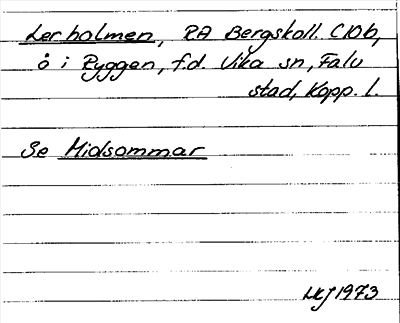 Lerholmen, RA Bergskoll. C10b,
ö i Ryggen, f.d. Vika sn, Falu
stad, Kopp. l.
Se Midsommar
1973